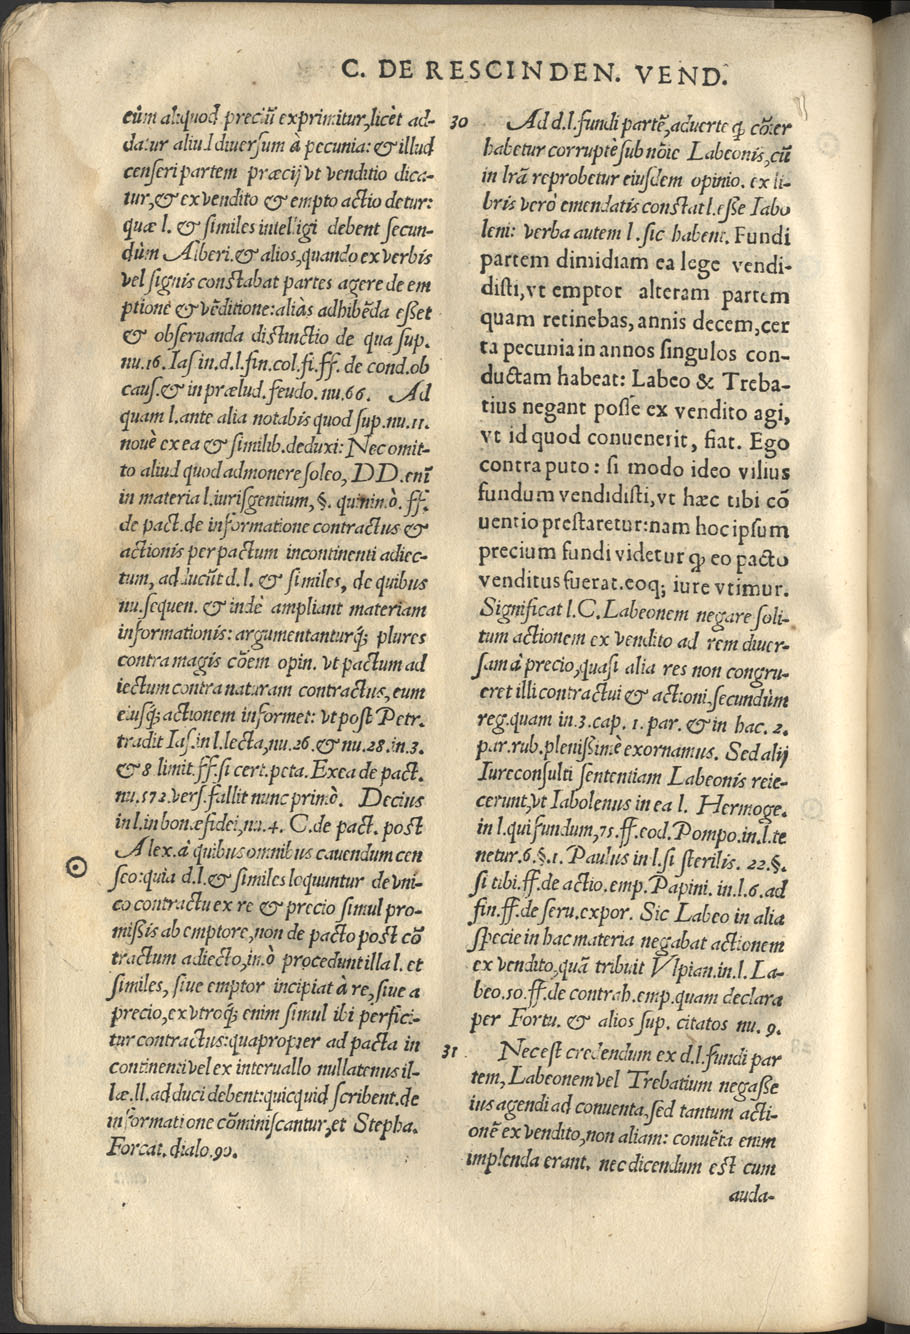 C. DE RESCINDEN. VEND.
eũm aliquod preciũ exprimitur, licèt ad-
datur aliud diuersum à pecunia: & illud
censeri partem præcij vt venditio dica-
tur, & ex vendito & empto actio detur:
quæ l. & similes intelligi debent secun-
dùm Alberi. & alios, quando ex verbis
vel signis constabat partes agere de em
ptione & vẽditione: aliàs adhibẽda esset
& obseruanda distinctio de qua sup.
nu. 16. Ias in. d. l. fin. col. fi. ff. de cond. ob
caus. & in prælud. feudo. nu. 66. Ad
quam l. ante alia notabis quod sup. nu. 11.
nouè ex ea & similib. deduxi: Nec omit-
to aliud quod admonere soleo, DD. enĩ
in materia l. iurisgentium, §. quinimò. ff.
de pact. de informatione contractus &
actionis per pactum incontinenti adiec-
tum, adducũt d. l. & similes, de quibus
nu. sequen. & indè ampliant materiam
informationis: argumentanturq́; plures
contra magis cõem opin. vt pactum ad
iectum contra naturam contractus, eum
eiusq́; actionem informet: vt post Petr.
tradit Ias. in l. lecta, nu. 26. & nu. 28. in. 3.
& 8 limit. ff. si cert. peta. Ex ea de pact.
nu. 572. vers. fallit nunc primò. Decius
in l. in bonæ fidei, nu. 4. C. de pact. post
Alex. à quibus omnibus cauendum cen
seo: quia d. l. & similes loquuntur de vni-
co contractu ex re & precio simul pro-
missis ab emptore, non de pacto post cõ
tractum adiecto, imò procedunt illa l. et
similes, siue emptor incipiat à re, siue a
precio, ex vtroq́; enim simul ibi perfici-
tur contractus: quapropter ad pacta in
continenti vel ex interuallo nullatenus il-
læ. ll. adduci debent: quicquid scribent. de
informatione cõminiscantur, et Stepha.
Forcat. dialo. 90.
30 Ad d. l. fundi partẽ, aduerte ꝙ cõiter
habetur corruptè sub nõie Labeonis, cũ
in lrã reprobetur eiusdem opinio. ex li-
bris verò emendatis constat l. esse Iabo
leni: verba autem l. sic habent. Fundi
partem dimidiam ea lege vendi-
disti, vt emptor alteram partem
quam retinebas, annis decem, cer
ta pecunia in annos singulos con-
ductam habeat: Labeo & Treba-
tius negant posse ex vendito agi,
vt id quod conuenerit, fiat. Ego
contra puto: si modo ideo vilius
fundum vendidisti, vt hæc tibi cõ
uentio prestaretur: nam hoc ipsum
precium fundi videtur ꝙ eo pacto
venditus fuerat. eoq; iure vtimur.
Significat l. C. Labeonem negare soli-
tum actionem ex vendito ad rem diuer-
sam à precio, quasi alia res non congru-
eret illi contractui & actioni, secundùm
reg. quam in. 3. cap. 1. par. & in hac. 2.
par. rub. plenissimè exornamus. Sed alij
Iureconsulti sententiam Labeonis reie-
cerunt, vt Iabolenus in ea l. Hermoge.
in l. qui fundum, 75. ff. eod. Pompo. in. l. te
netur. 6. §. 1. Paulus in l. si sterilis. 22. §.
si tibi. ff. de actio. emp. Papini. in l. 6. ad
fin. ff. de seru. expor. Sic Labeo in alia
specie in hac materia negabat actionem
ex vendito, quã tribuit Vlpian. in. l. La-
beo. 50. ff. de contrah. emp. quam declara
per Fortu. & alios sup. citatos nu. 9.
31 Nec est credendum ex d. l. fundi par
tem, Labeonem vel Trebatium negasse
ius agendi ad conuenta, sed tantum acti-
onẽ ex vendito, non aliam: conuẽta enim
implenda erant. nec dicendum est cum
auda-